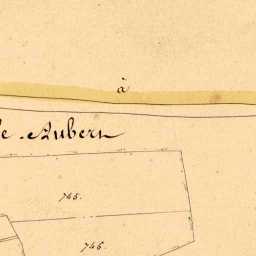 à
le Aubert
745.
746.